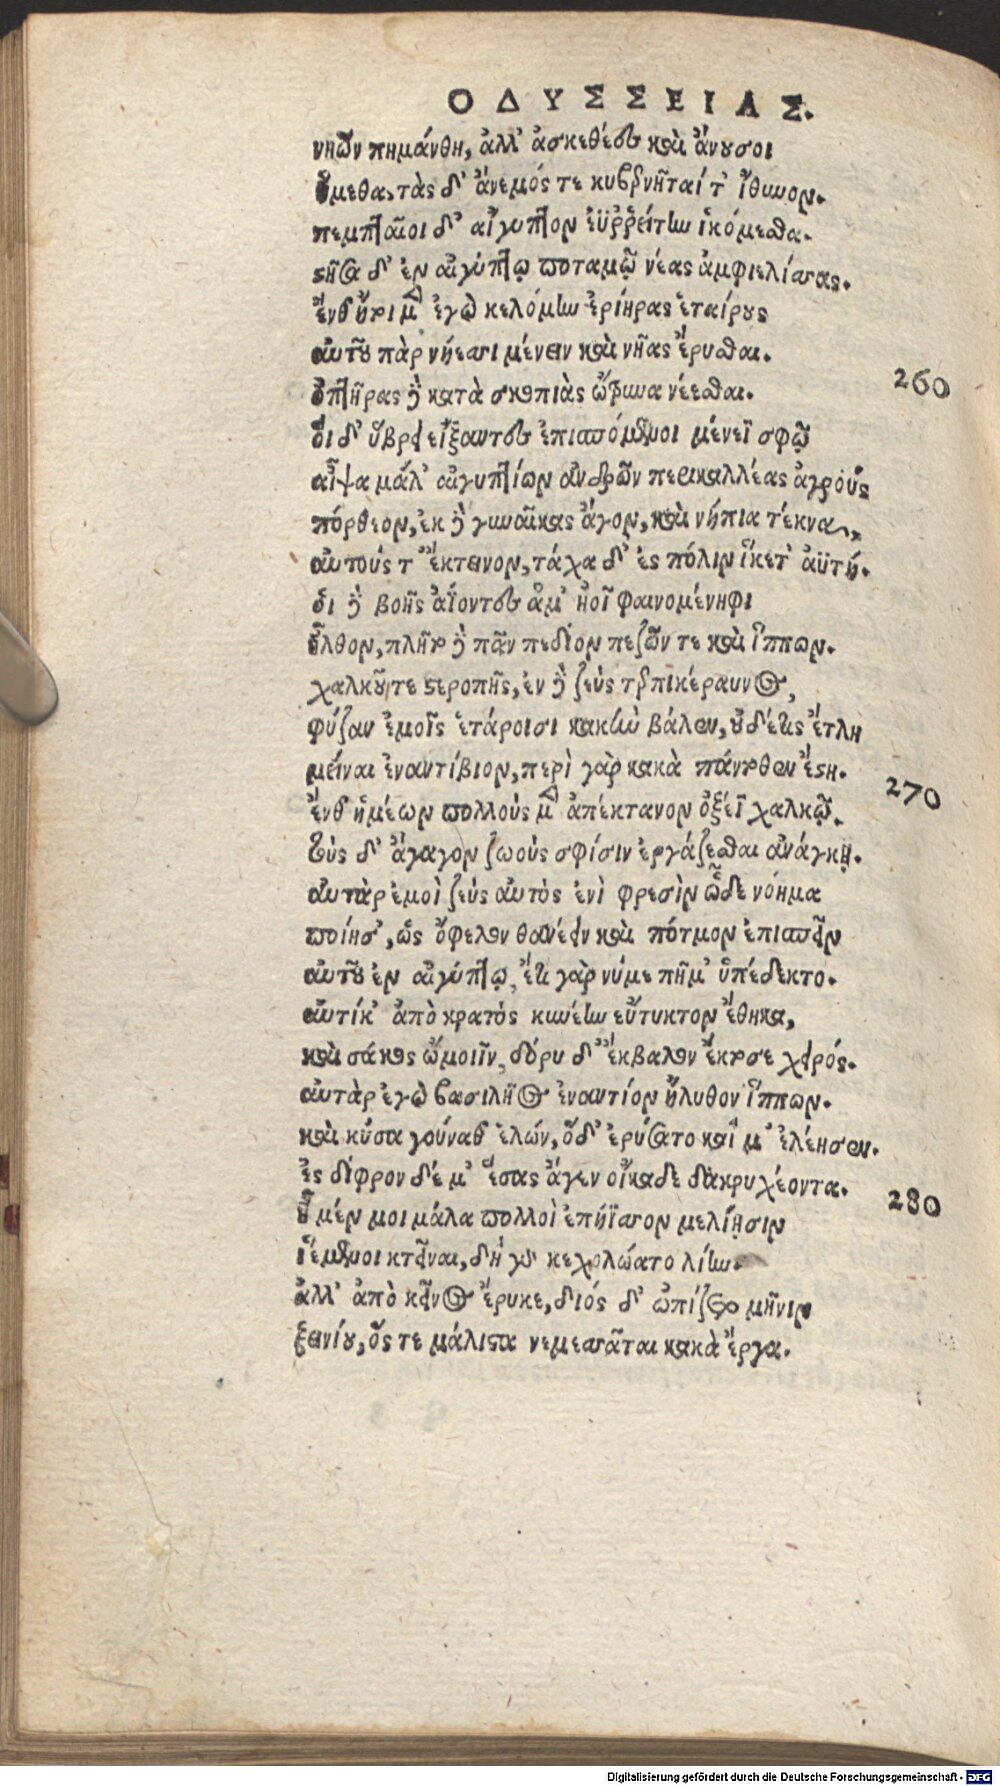 ΟΔΥΣΣΕΙΑΣ.
νηῶν πημάνθη, ἀλλ' ἀσκεθέες καὶ ἄνουσοι
ἥμεθα, τὰς δ' ἄνεμός τε κυβερνῆταί τ' ἴθυνον.
πεμπταῖοι δ' αἴγυπτον ἐϋῤῥείτην ἱκόμεσθα.
στῆσα δ' ἐν αἰγύπτῳ ποταμῷ νέας ἀμφιελίσσας.
ἔνθ' ἤτοι μὲν ἐγὼ κελόμην ἐρίηρας ἑταίρους
αὐτοῦ πὰρ νήεσσι μένειν καὶ νῆας ἔρυσθαι.
ὀπτῆρας δὲ κατὰ σκοπιὰς ὤτρυνα νέεσθαι. 260
οἱ δ' ὕβρει εἴξαντες ἐπισπόμενοι μένεϊ σφῷ
αἶψα μάλ' αἰγυπτίων ἀνδρῶν περικαλλέας ἀγροὺς
πόρθεον, ἐκ δὲ γυναῖκας ἄγον, καὶ νήπια τέκνα,
αὐτούς τ' ἔκτεινον, τάχα δ' ἐς πόλιν ἵκετ' ἀϋτή.
οἱ δὲ βοῆς ἀΐοντες ἅμ' ἠοῖ φαινομένηφι
ἦλθον, πλῆτο δὲ πᾶν πεδίον πεζῶν τε καὶ ἵππων.
χαλκοῦ τε στεροπῆς, ἐν δὲ ζεὺς τερπικέραυνος,
φύζαν ἐμοῖς ἑτάροισι κακὴν βάλεν, οὐδέ τις ἔτλη
μεῖναι ἐναντίβιον, περὶ γὰρ κακὰ πάντοθεν ἔστη. 270
ἔνθ' ἡμέων πολλοὺς μὲν ἀπέκτανον ὀξέϊ χαλκῷ.
τοὺς δ' ἄγαγον ζωοὺς σφίσιν ἐργάζεσθαι ἀνάγκῃ.
αὐτὰρ ἐμοὶ ζεὺς αὐτὸς ἐνὶ φρεσὶν ὧδε νόημα
ποίησ', ὡς ὄφελον θανέειν καὶ πότμον ἐπισπεῖν
αὐτοῦ ἐν αἰγύπτῳ, ἔτι γὰρ νύ με πῆμ' ὑπέδεκτο.
αὐτίκ' ἀπὸ κρατὸς κυνέην εὔτυκτον ἔθηκα,
καὶ σάκος ὤμοιϊν, δόρυ δ' ἔκβαλον ἔκτοσε χειρός.
αὐτὰρ ἐγὼ βασιλῆος ἐναντίον ἤλυθον ἵππων.
καὶ κύσα γούναθ' ἑλών, ὁ δ' ἐρύσατο καί μ' ἐλέησεν.
ἐς δίφρον δέ μ' ἕσας ἄγεν οἴκαδε δακρυχέοντα. 280
ἦ μέν μοι μάλα πολλοὶ ἐπήϊσσον μελίῃσιν
ἱέμενοι κτεῖναι, δὴ γὰρ κεχολώατο λίην.
ἀλλ' ἀπὸ κεῖνος ἔρυκε, διὸς δ' ὠπίζετο μῆνιν
ξεινίου, ὅς τε μάλιστα νεμεσσᾶται κακὰ ἔργα.
Digitalisierung gefördert durch die Deutsche Forschungsgemeinschaft - DFG